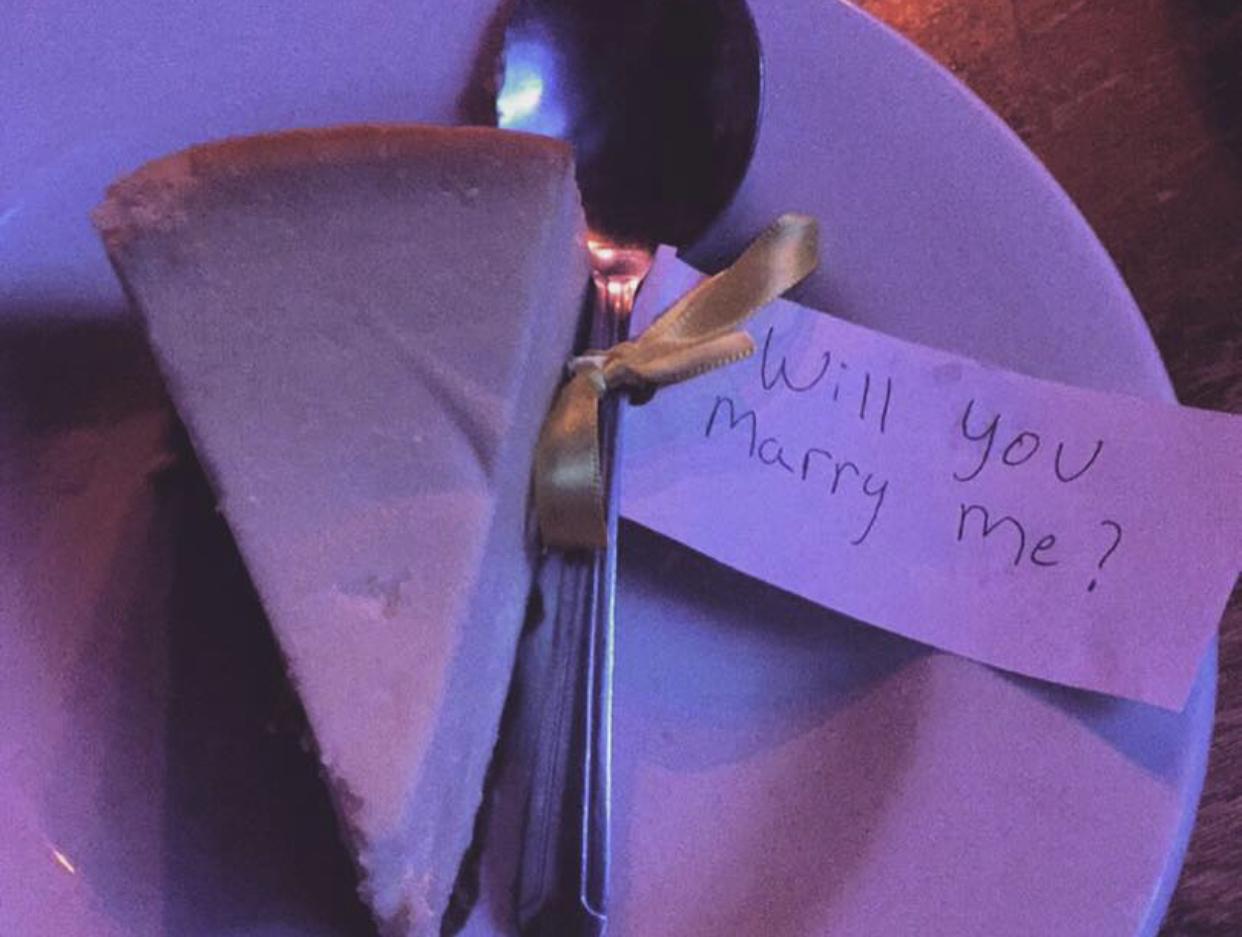 Will you
Marry me?